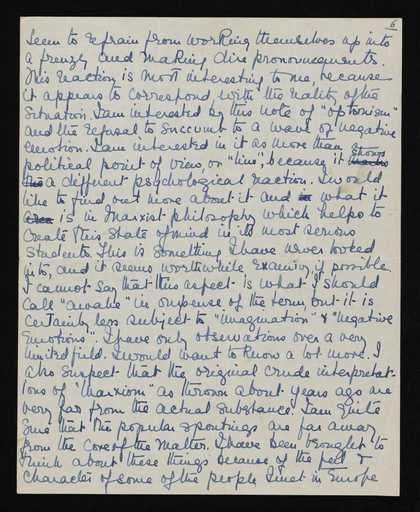 6
seem to refrain from working themselves up into
a frenzy and making dire pronouncements.
This reaction is most interesting to me, because
it appears to correspond with the reality of the
situation. I am interested by this note of "optimism"
and the refusal to succumb to a wave of negative
emotion. I am interested in it as more than
political point of view, or "line", because it shows
a different psychological reaction. I would
like to find out more about it and what it
is in Marxist philosophy which helps to
create this state of mind in its most serious
students. This is something I have never looked
into, and it seems worthwhile examining if possible.
I cannot say that this aspect is what I should
call "awake" in our sense of the term, but it is
certainly less subject to "imagination" & "negative
emotions". I have only observations over a very
limited field. I would want to know a lot more. I
also suspect that the original crude interpretat-
ions of "Marxism" as thrown about years ago are
very far from the actual substance. I am quite
sure that the popular spoutings are far away
from the core of the matter. I have been brought to
think about these things because of the &
character of some of the people I met in Europe